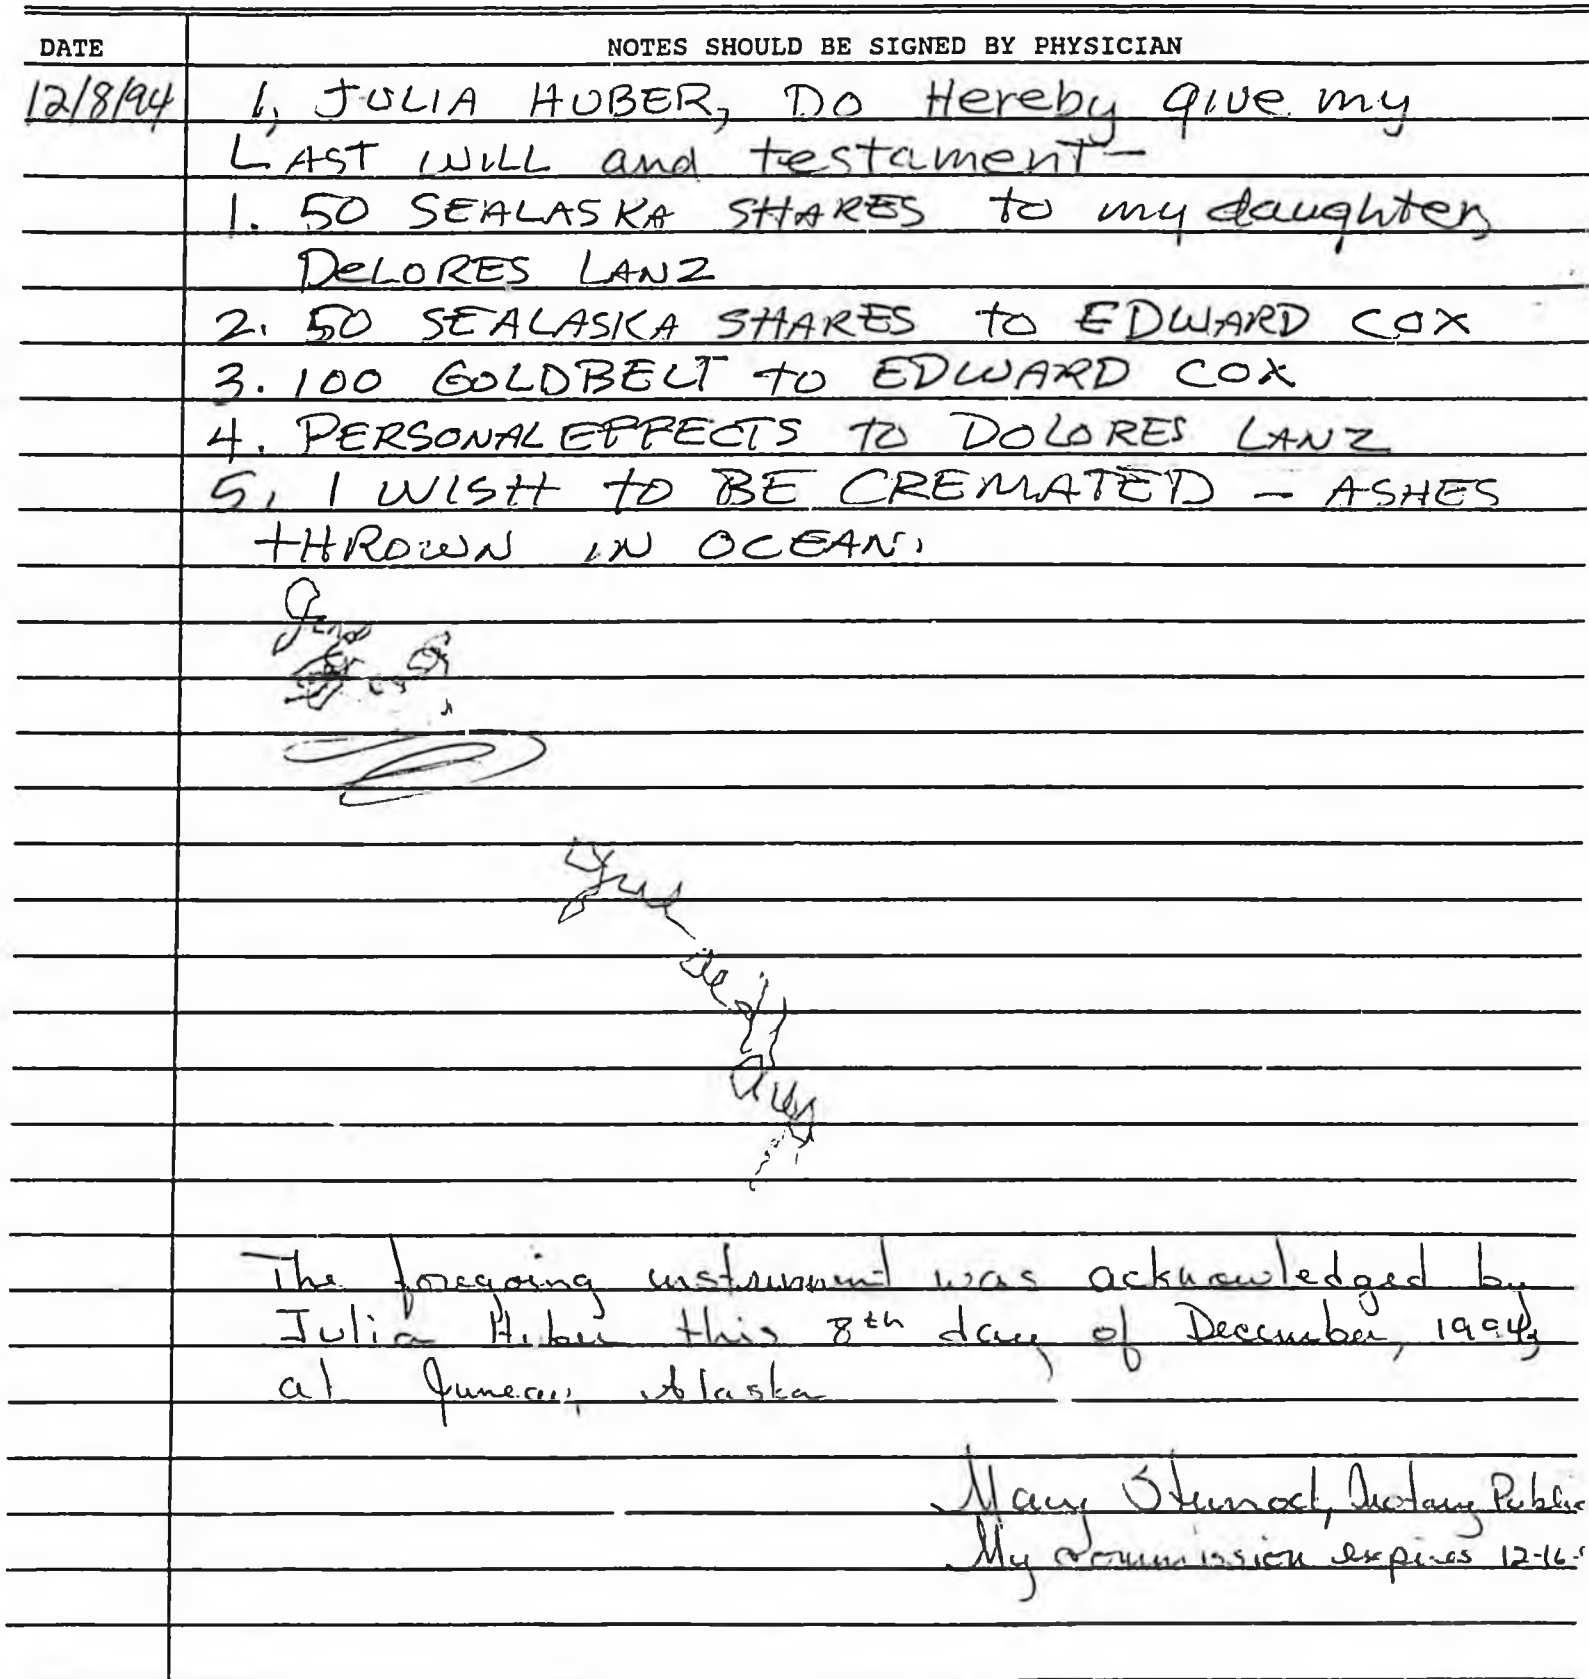 DATE NOTES SHOULD BE SIGNED BY PHYSICIAN
12/8/94 I, JULIA HUBER, DO Hereby give my
LAST WILL and testament-
1. 50 SEALASKA SHARES to my daughter,
DELORES LANZ
2. 50 SEALASKA SHARES to EDWARD COX
3. 100 GOLDBELT to EDWARD COX
4. PERSONAL EFFECTS TO DOLORES LANZ
5. I WISH to BE CREMATED - ASHES
THROWN IN OCEAN.
The foregoing instrument was acknowledged by
Julia Huber this 8th day of December, 1994,
at Juneau, Alaska
Mary Notary Public
My commission expires 12-16-